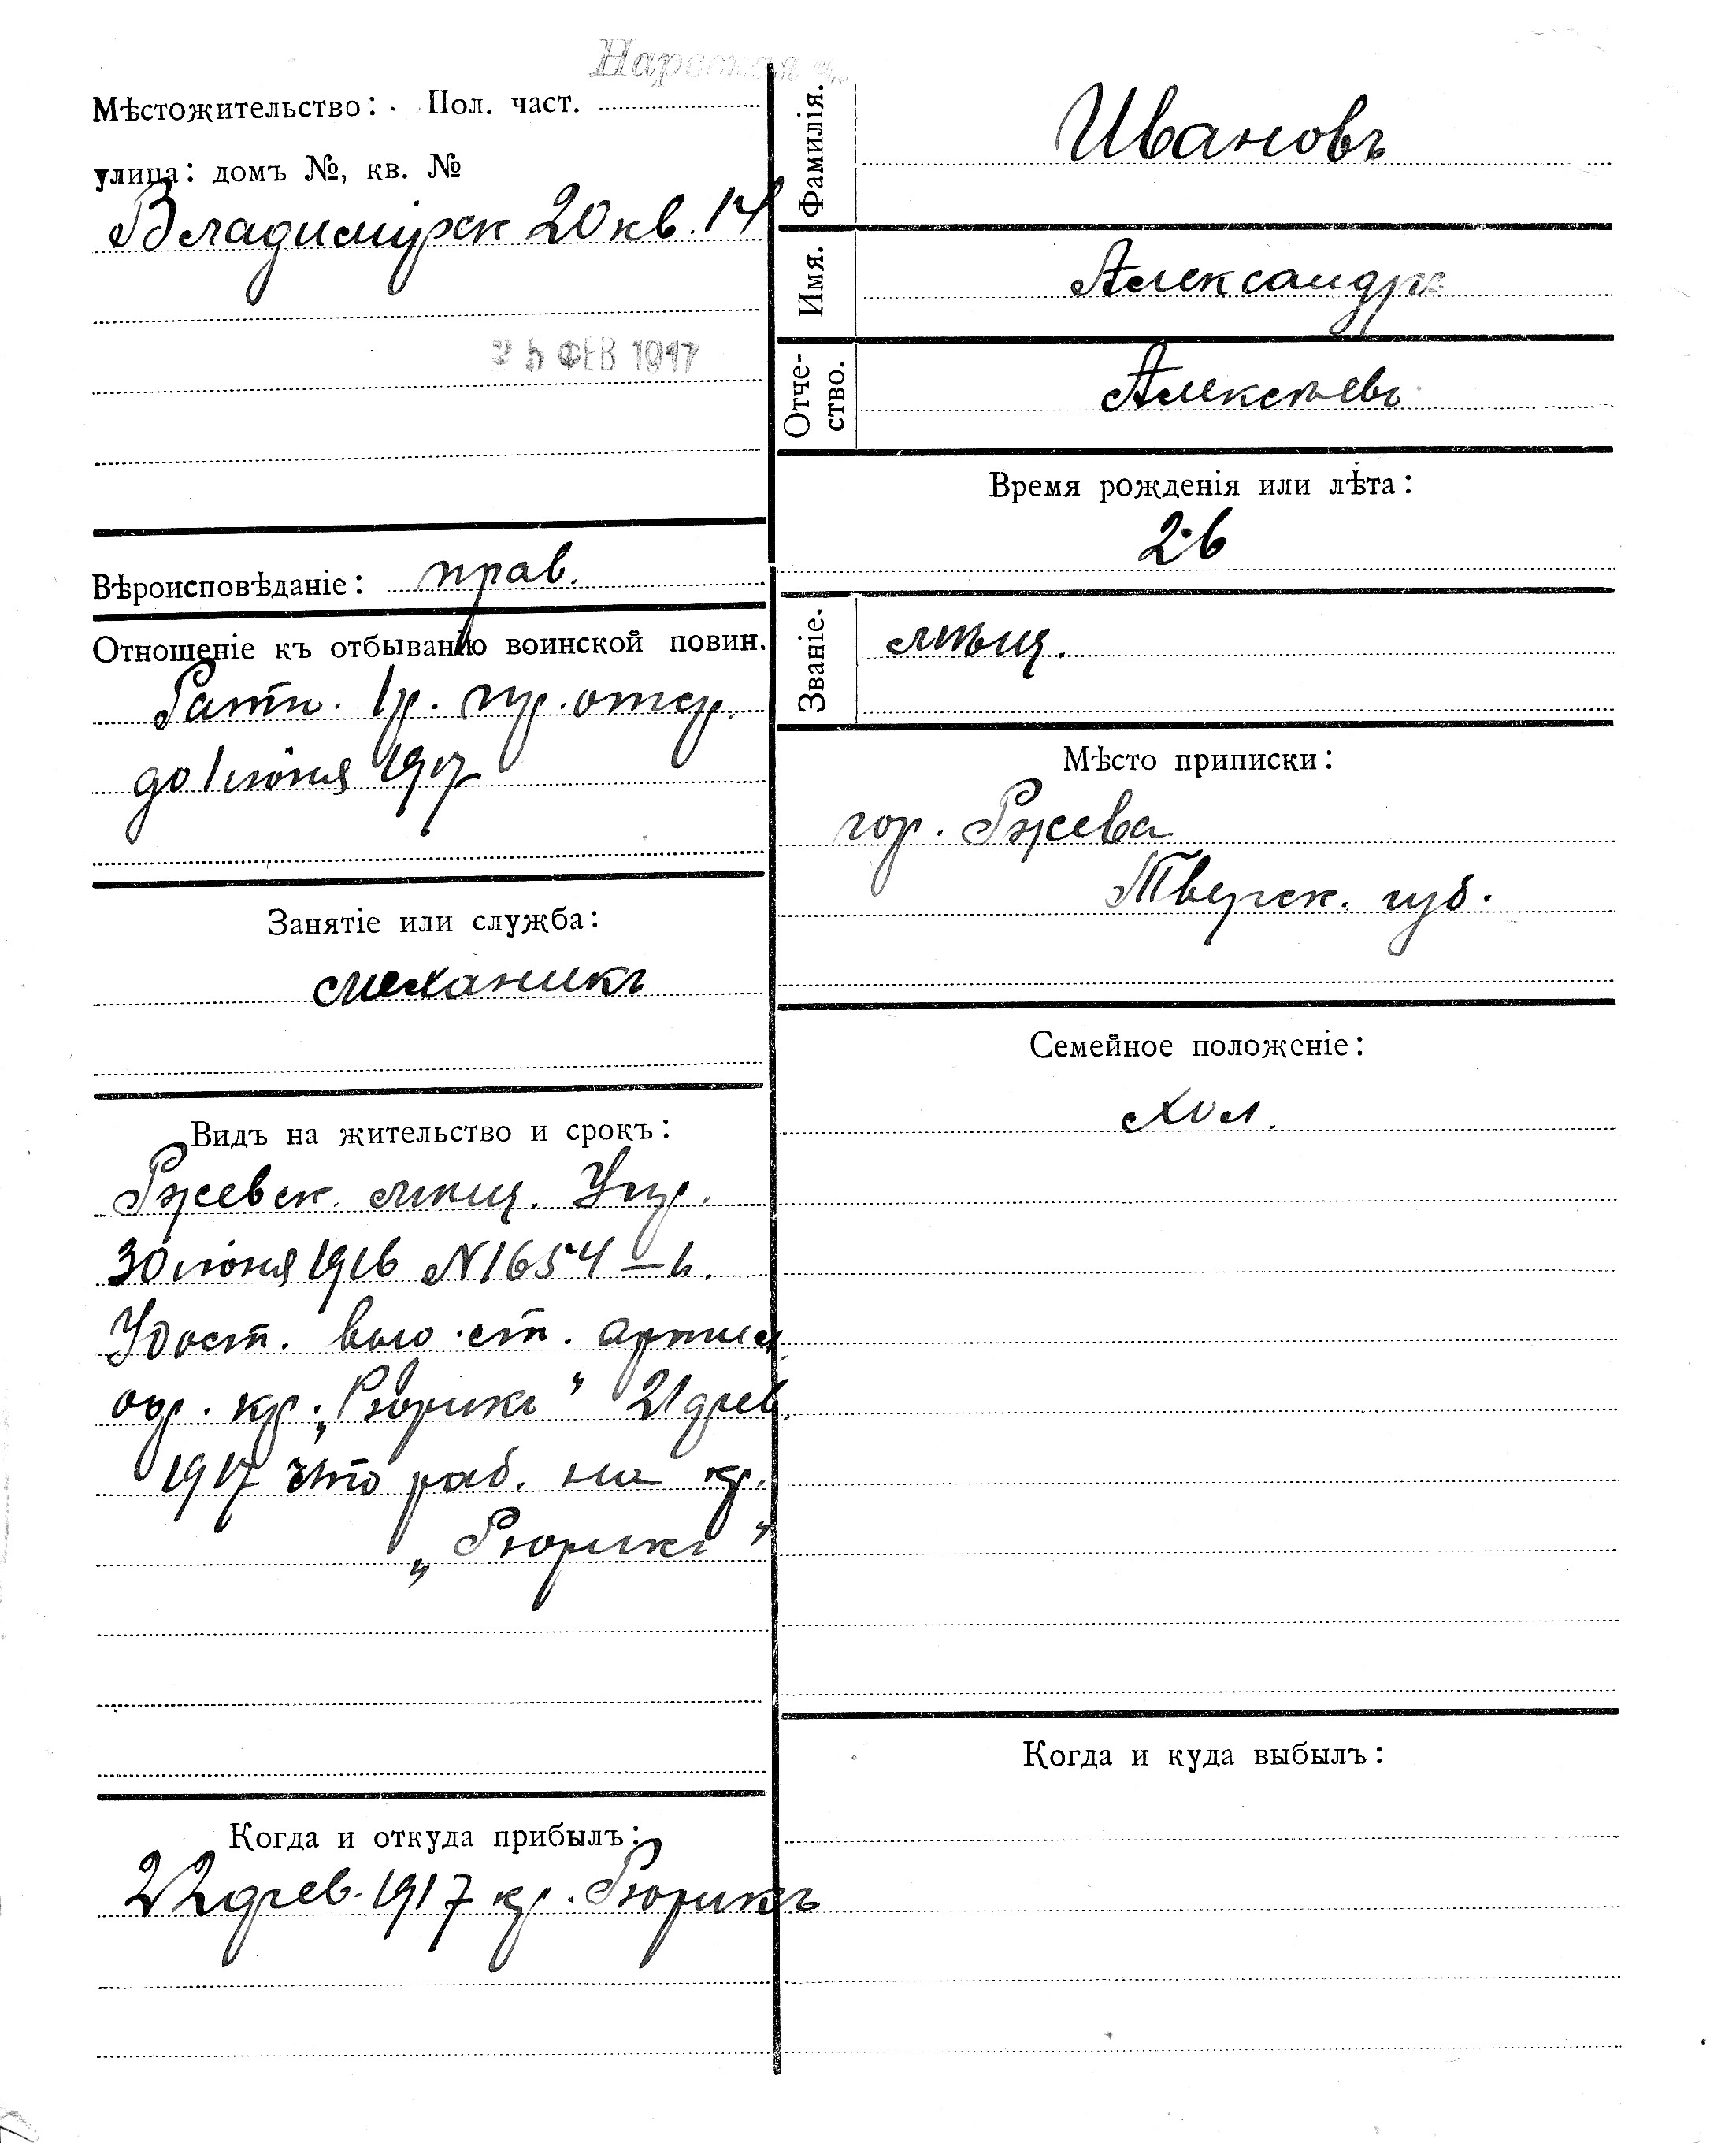 Нарвская ч.
Мѣстожительство: Пол. част.
улица: домъ №, кв. №
Владимірск 20 кв. 14
25 ФЕВ 1917
Вѣроисповѣданіе: прав.
Отношеніе къ отбыванію воинской повин.
Ратн. 1 р. пр. отср.
до 1 іюня 1917
Занятіе или служба:
механикъ
Видъ на жительство и срокъ:
Ржевск. мѣщ. Упр.
30 іюня 1916 N 1654
Удост. ст. артил
оф. кр. „Рюрикъ" 21 фев.
1917 что раб. на кр.
„Рюрикъ"
Когда и откуда прибылъ:
22 фев. 1917 кр. Рюрикъ
Фамилія.
Ивановъ
Имя.
Александръ
Отче-
ство.
Алексѣевъ
Время рожденія или лѣта:
26
Званіе.
мѣщ.
Мѣсто приписки:
гор. Ржева
Тверск. губ.
Семейное положеніе:
хол.
Когда и куда выбылъ: